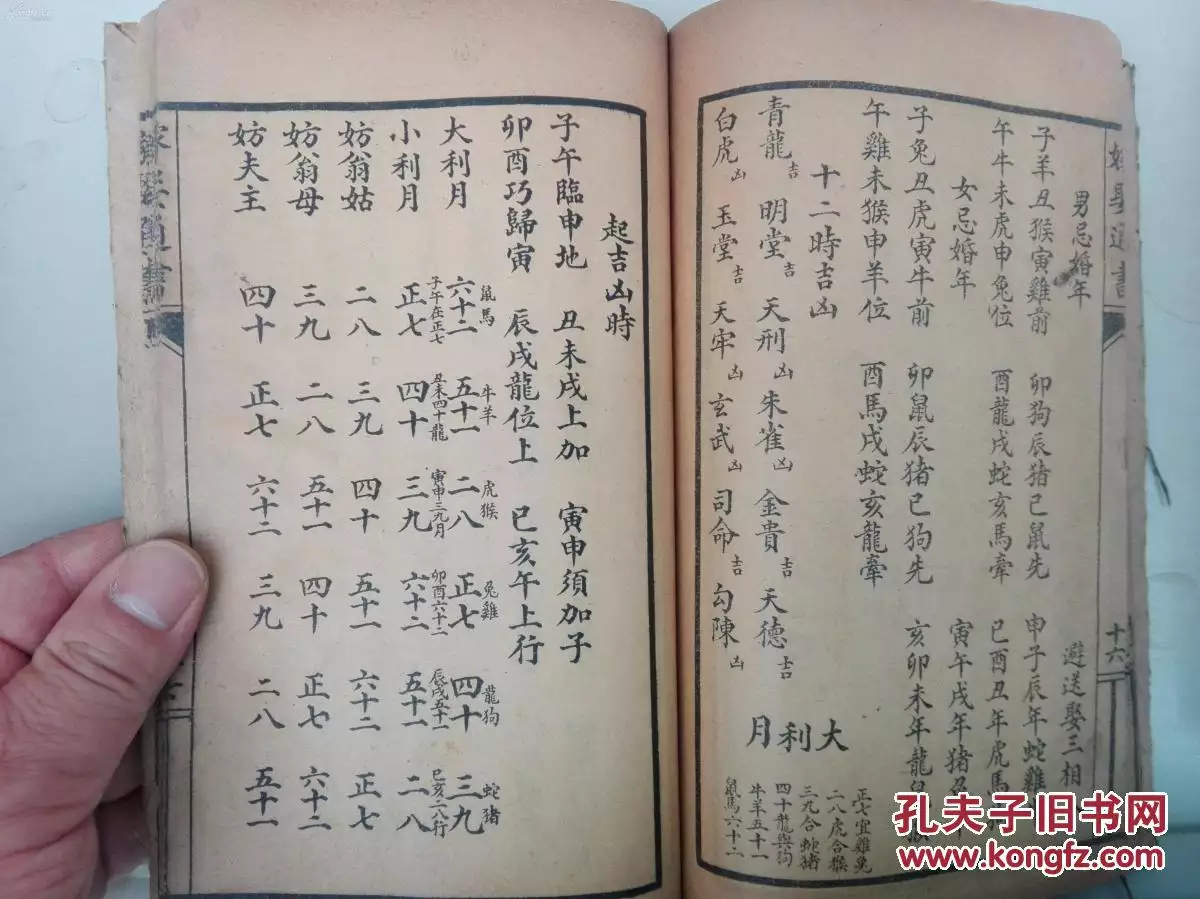 男忌婚年
子羊丑猴寅雞前 卯狗辰猪巳鼠先
午牛未虎申兔位 酉龍戌蛇亥馬牽
女忌婚年
子兔丑虎寅牛前 卯鼠辰猪巳狗先
午雞未猴申羊位 酉馬戌蛇亥龍牽
避送娶三相
申子辰年蛇雞
巳酉丑年虎馬
寅午戌年猪
亥卯未年龍鼠
十六
十二時吉凶
青龍吉 明堂吉 天刑凶 朱雀凶 金貴吉 天德吉
白虎凶 玉堂吉 天牢凶 玄武凶 司命吉 勾陳凶
大利月
正七宜雞兔
二八虎合猴
三九合蛇猪
四十龍與狗
牛羊五十一
鼠馬六十二
起吉凶時
子午臨申地 丑未戌上加 寅申須加子
卯酉巧歸寅 辰戌龍位上 巳亥午上行
鼠馬 牛羊 虎猴 兔雞 龍狗 蛇猪
大利月 六十二 五十一 二八 正七 四十 三九
子午在正七 丑未四十龍 寅申三九月 卯酉六十二 辰戌五十一 巳亥二八行
小利月 正七 四十 三九 六十二 五十一 二八
妨翁姑 二八 三九 四十 五十一 六十二 正七
妨翁母 三九 二八 五十一 四十 正七 六十二
妨夫主 四十 正七 六十二 三九 二八 五十一
孔夫子旧书网
www.kongfz.com